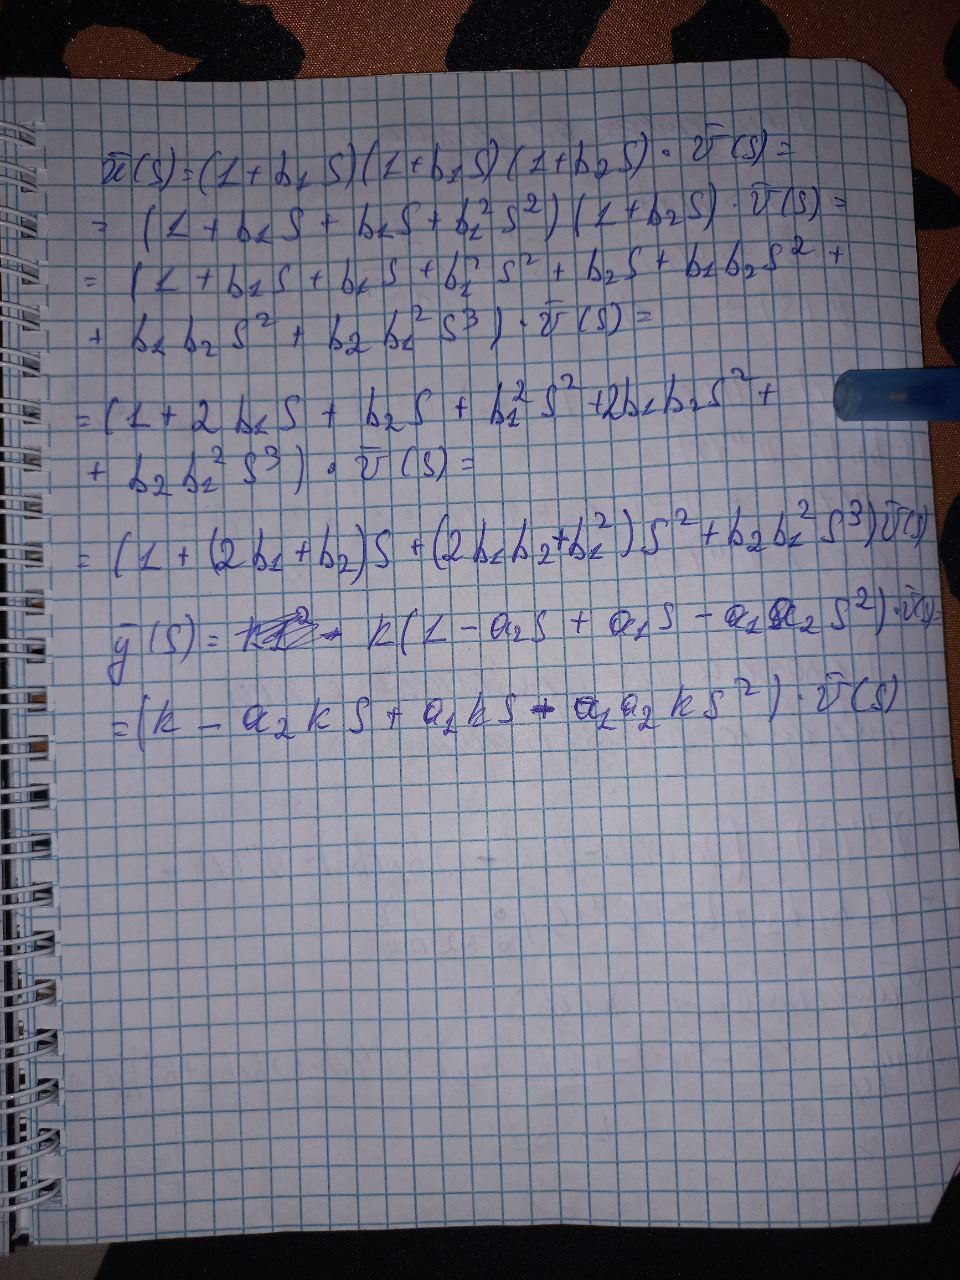 x̄(S)=(1+b₁S)(1+b₁S)(1+b₂S)·v̄(S)=
= (1+b₁S+b₁S+b₁²S²)(1+b₂S)·v̄(S)=
= (1+b₁S+b₁S+b₁²S²+b₂S+b₁b₂S²+
+ b₁b₂S²+b₂b₁²S³)·v̄(S)=
=(1+2b₁S+b₂S+b₁²S²+2b₁b₂S²+
+ b₂b₁²S³)·v̄(S)=
= (1+(2b₁+b₂)S+(2b₁b₂+b₁²)S²+b₂b₁²S³)v̄(S)
ȳ(S)= k(1-a₂S+a₁S-a₁a₂S²)·v̄(S)=
=(k-a₂kS+a₁kS-a₁a₂kS²)·v̄(S)